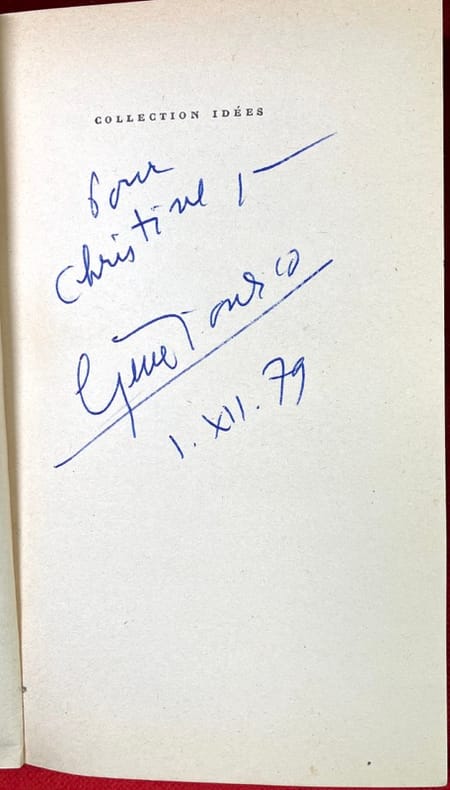 COLLECTION IDÉES
Pour
Christine
Eugène Ionesco
1. XII. 79